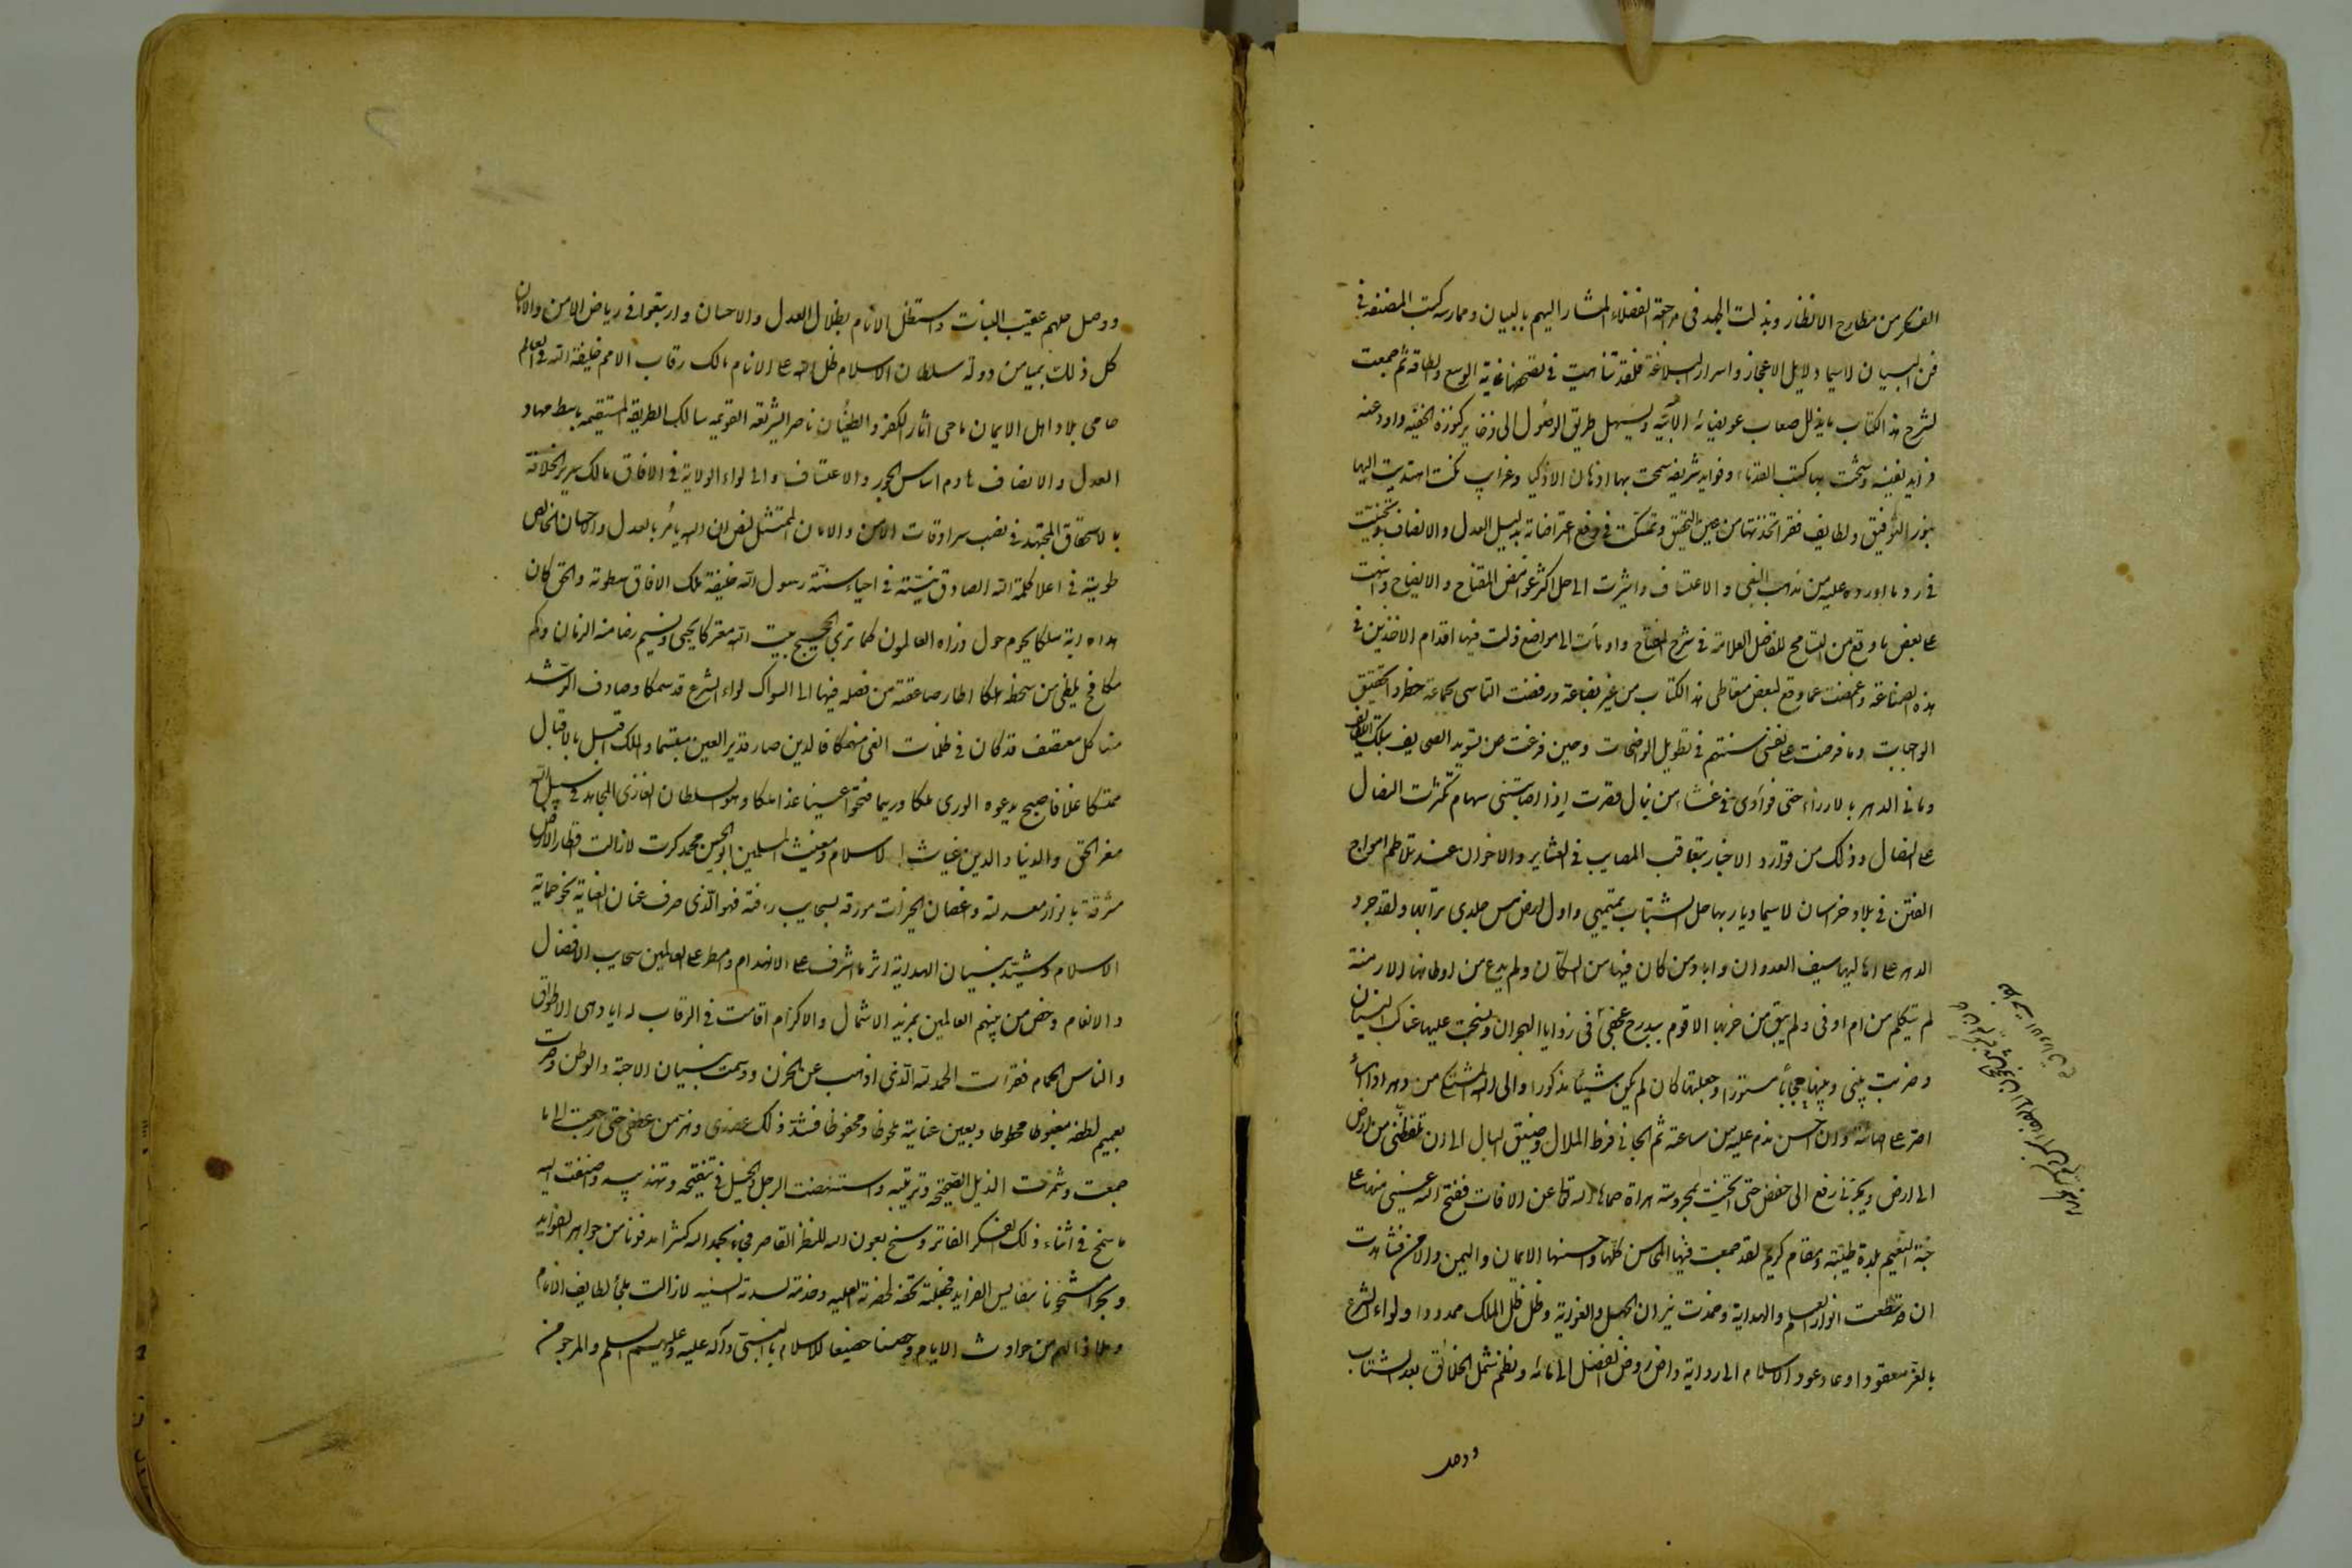 الفكر من مطارح الانظار وبذلت الجهد في مراجعة الفضلاء المشار اليهم بالبيان وممارسة كتب المصنفة في
فن البيان لاسيما دلايل الاعجاز واسرار البلاغة فلقد تناهيت في تصفحهما غاية الوسع والطاقة ثم جمعت
لشرح هذا الكتاب ما يذلل صعاب عويصاته الأبيّة ويسهل طريق الوصول الى ذخاير كنوزه الخفية واودعته
فرايد نفيسة وشحت بها كتب القدماء وفوايد شريفة سمحت بها اذهان الاذكيا وغرايب نكت اهتديت اليها
بنور التوفيق ولطايف فقر اتخذتها من عين التحقيق وتمسكت في دفع اعتراضاته بذيل العدل والانصاف وتجنبت
في رد ما اورده عليه من مذهب البغي والاعتساف واشرت الى حل اكثر غوامض المفتاح والايضاح ونبهت
على بعض ما وقع من التسامح للفاضل العلامة في شرح المفتاح واومأت الى مواضع زلت فيها اقدام الاخذين في
هذه الصناعة وغمضت عما وقع لبعض متعاطي هذا الكتاب من غير بضاعة ورفضت التاسي بجماعة حظروا تحقيق
الواجبات وما فرضت على نفسي سنتهم في تطويل الواضحات وحين فرغت من تسويد الصحايف بتلك اللطايف
رماني الدهر بالارزاء حتى فوادي في غشاء من نبال فصرت اذا اصابتني سهام تكسرت النصال
على النصال وذلك من توارد الاخبار بتعاقب المصايب في العشاير والاخوان عند تلاطم امواج
الفتن في بلاد خراسان لاسيما ديار بها حل الشباب تميمتي واول ارض مس جلدي ترابها ولقد جرد
الدهر على اهاليها سيف العدوان واباد من كان فيها من السكان ولم يدع من اوطانها الا دمنة
لم تتكلم من ام اوفى ولم يبق من حزبها الا قوم ببلدح عجفى في زوايا الهجران ونسجت عليها عناكب النسيان
وضربت بيني وبينها حجابًا مستورا وجعلتها كان لم يكن شيئًا مذكورا والى الله المشتكى من دهر اذا اساء
اصر على اساءته وان احسن ندم عليه من ساعته ثم الجاني فرط الملال وضيق البال الى ان تلفظني من ارض
الى ارض ويجرني رفع الى خفض حتى انخت بمحروسة هراة حماها الله تعالى عن الافات ففتح الله عيني منها على
جنة النعيم بلدة طيبة ومقام كريم لقد جمعت فيها المحاسن كلها واحسنها الايمان واليمن والامن فشاهدت
ان قد سطعت انوار العلم والهداية وخمدت نيران الجهل والغواية وظل ظل الملك ممدودا ولواء الشرع
بالعز معقودا وعاد عود الاسلام الى روائه واض روض الفضل الى مائه ونظم شمل الخلائق بعد الشتات
ووصل
ووصل حبلهم عقيب البتات واستظل الانام بظلال العدل والاحسان وارتبعوا في رياض الامن والامان
كل ذلك بميامن دولة سلطان الاسلام ظل الله على الانام مالك رقاب الامم خليفة الله في العالم
حامى بلاد اهل الايمان ماحى اثار الكفر والطغيان ناصر الشريعة القويمه سالك الطريقة المستقيمه باسط مهاد
العدل والانصاف هادم اساس الجور والاعتساف والى لواء الولاية في الافاق مالك سرير الخلافة
بالاستحقاق المجتهد في نصب سرادقات الامن والامان الممتثل لنص ان الله يأمر بالعدل والاحسان الخالص
طويته في اعلا كلمة الله الصادق نيته في احياء سنة رسول الله خليفة ملك الافاق بسطوته والحق كان
مداه اية سلكا يحوم حول ذراه العالمون كما ترى الحجيج ببيت الله معتركا يحيي ونسيم رضا منه الزمان وكم
مكافح يلظى من سخطه هلكا اطار صاعقة من نصله فيها الى السماك لواء الشرع قد سمكا وصادف الرشد
منها كل معتصف قد كان في ظلمات الغي منهمكا فالدين صار قرير العين مبتسما والملك اقبل بالاقبال
ممتسكا علا فاصبح يدعوه الورى ملكا وريثما فتحوا عينا غدا ملكا وهو السلطان الغازى المجاهد في سبيل الله
معز الحق والدنيا والدين غياث الاسلام ومغيث المسلمين ابو الحسين محمد كرت لازالت اقطار الارض
مشرقة بانوار معدلته واغصان الخيرات مورقة بسحايب رافته فهو الذي صرف عنان العناية نحو حماية
الاسلام وشيّد بنيان الهداية اثر ما اشرف على الانهدام وامطر على العالمين سحايب الافضال
والانعام وخص من بينهم العالمين بمزيد الاشمال والاكرام اقامت في الرقاب له اياد هى الاطواق
والناس الحمام فقرات الحمد لله الذي اذهب عن الحزن ووسمت بنسيان الاحبة والوطن وصرت
بعميم لطفه مغبوطا محظوظا وبعين عناية ملحوظا ومحفوظا فشد ذلك عضدى وهز من عطفى حتى رجعت الى ما
جمعت وشمرت الذيل لتصحيحه وترتيبه واستنهضت الرجل والخيل في تنقيحه وتهذيبه واضفت اليه
ما سنح في اثناء ذلك للفكر الفاتر وسنح بعون الله للنظر القاصر فجاء بحمد الله كنزا مدفونا من جواهر الفوايد
وبحرا مشحونا بنفايس الفرايد فجعلته تحفة لحضرته العليه وخدمة لسدته السنيه لازالت ملجأ لطايف الانام
وملاذا لهم من حوادث الايام وحصنا حصينا للاسلام بالنبي وآله عليه وعليهم السلم والمرجو من